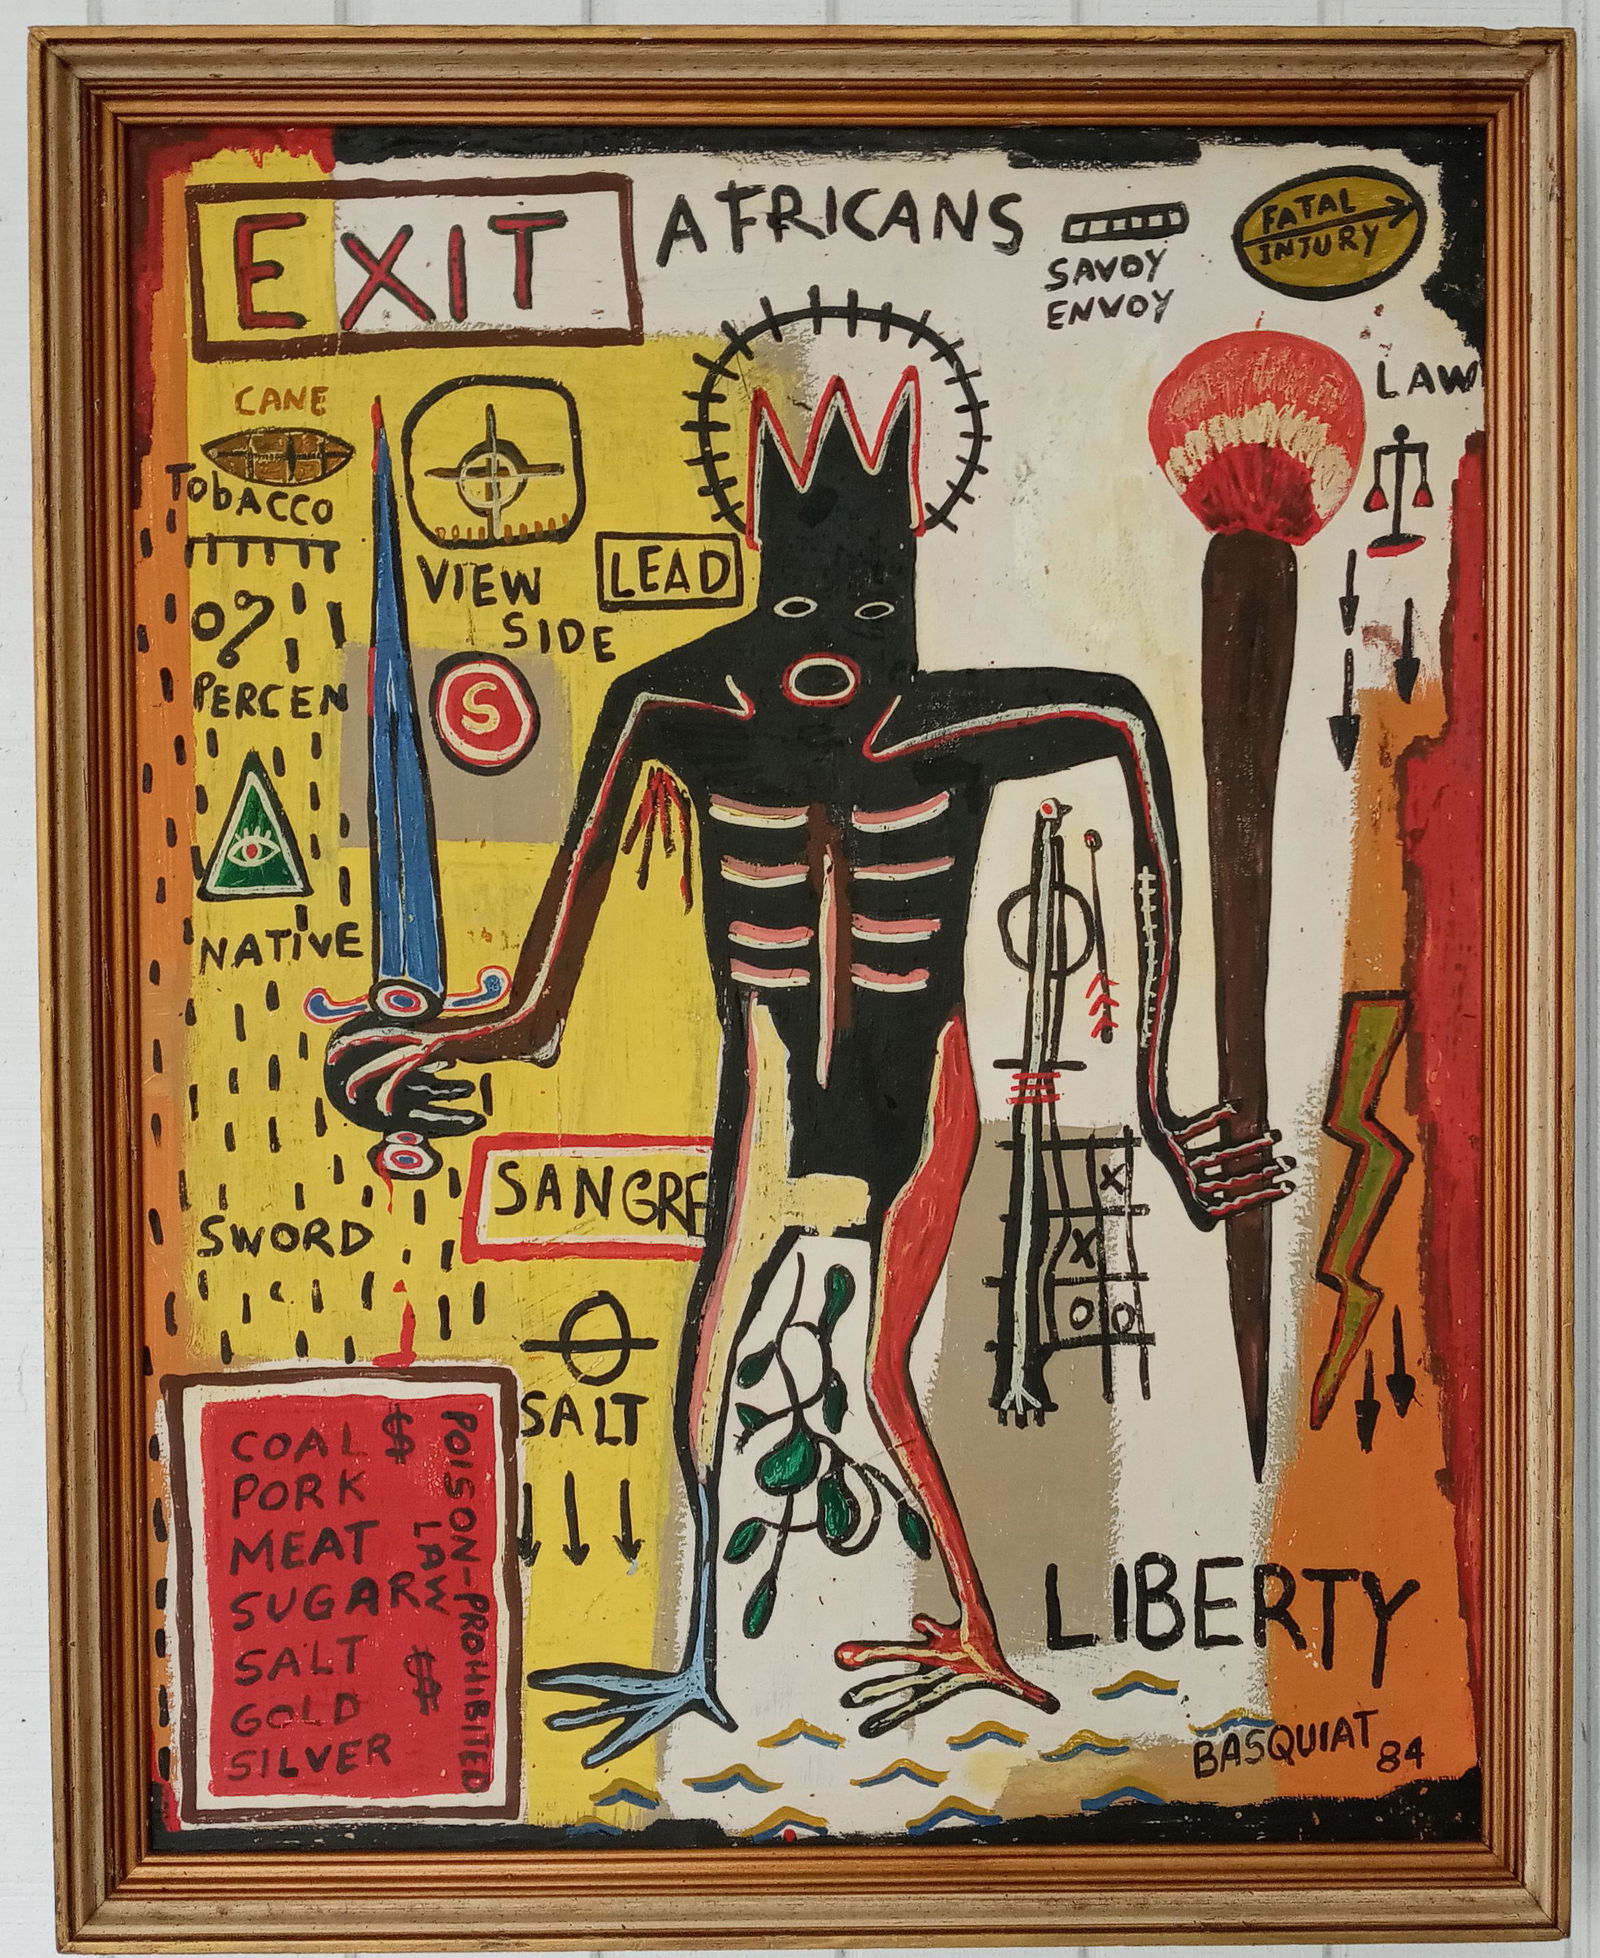 EXIT
AFRICANS
SAVOY
ENVOY
FATAL
INJURY
LAW
CANE
TOBACCO
VIEW
SIDE
LEAD
%
PERCEN
S
NATIVE
SANGRE
SWORD
X
X
O O
SALT
COAL $
PORK
MEAT
SUGAR
SALT
GOLD
SILVER
$
LAW
POISON-PROHIBITED
LIBERTY
BASQUIAT 84